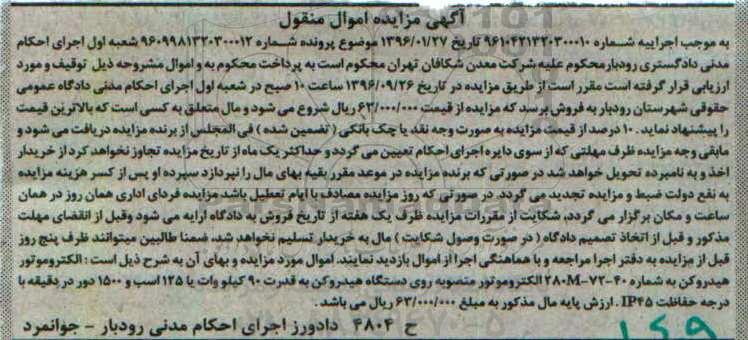 آگهی مزایده اموال منقول
به موجب اجراییه شماره ۹۶۱۰۴۲۱۳۲۰۳۰۰۰۱۰ تاریخ ۱۳۹۶/۰۱/۲۷ موضوع پرونده شماره ۹۶۰۹۹۸۱۳۲۰۳۰۰۰۱۲ شعبه اول اجرای احکام
مدنی دادگستری رودبار محکوم علیه شرکت معدن شکافان تهران محکوم است به پرداخت محکوم به و اموال مشروحه ذیل توقیف و مورد
ارزیابی قرار گرفته است مقرر است از طریق مزایده در تاریخ ۱۳۹۶/۰۹/۲۶ ساعت ۱۰ صبح در شعبه اول اجرای احکام مدنی دادگاه عمومی
حقوقی شهرستان رودبار به فروش برسد که مزایده از قیمت ۶۳/۰۰۰/۰۰۰ ریال شروع می شود و مال متعلق به کسی است که بالاترین قیمت
را پیشنهاد نماید. ۱۰ درصد از قیمت مزایده به صورت وجه نقد یا چک بانکی ( تضمین شده ) فی المجلس از برنده مزایده دریافت می شود و
مابقی وجه مزایده ظرف مهلتی که از سوی دایره اجرای احکام تعیین می گردد و حداکثر یک ماه از تاریخ مزایده تجاوز نخواهد کرد از خریدار
اخذ و به نامبرده تحویل خواهد شد در صورتی که برنده مزایده در موعد مقرر بقیه بهای مال را نپردازد سپرده او پس از کسر هزینه مزایده
به نفع دولت ضبط و مزایده تجدید می گردد. در صورتی که روز مزایده مصادف با ایام تعطیل باشد مزایده فردای اداری همان روز در همان
ساعت و مکان برگزار می گردد، شکایت از مقررات مزایده ظرف یک هفته از تاریخ فروش به دادگاه ارایه می شود وقبل از انقضای مهلت
مذکور و قبل از اتخاذ تصمیم دادگاه ( در صورت وصول شکایت ) مال به خریدار تسلیم نخواهد شد. ضمنا طالبین میتوانند ظرف پنج روز
قبل از مزایده به دفتر اجرا مراجعه و با هماهنگی اجرا از اموال بازدید نمایند. اموال مورد مزایده و بهای آن به شرح ذیل است : الکتروموتور
هیدروکن به شماره ۴۰-۷۲-۲۸۰M الکتروموتور منصوبه روی دستگاه هیدروکن به قدرت ۹۰ کیلو وات یا ۱۲۵ اسب و ۱۵۰۰ دور در دقیقه با
درجه حفاظت IP۴۵ . ارزش پایه مال مذکور به مبلغ ۶۳/۰۰۰/۰۰۰ ریال می باشد .
ح ۴۸۰۴ دادورز اجرای احکام مدنی رودبار - جوانمرد
۱۶۹